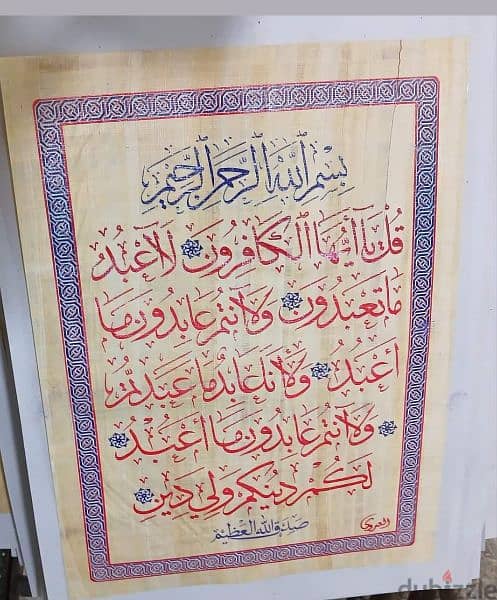 بسم الله الرحمن الرحيم
قل يا أيها الكافرون لا أعبد
ما تعبدون ولا أنتم عابدون ما
أعبد ولا أنا عابد ما عبدتم
ولا أنتم عابدون ما أعبد
لكم دينكم ولي دين
صدق الله العظيم
dubizzle